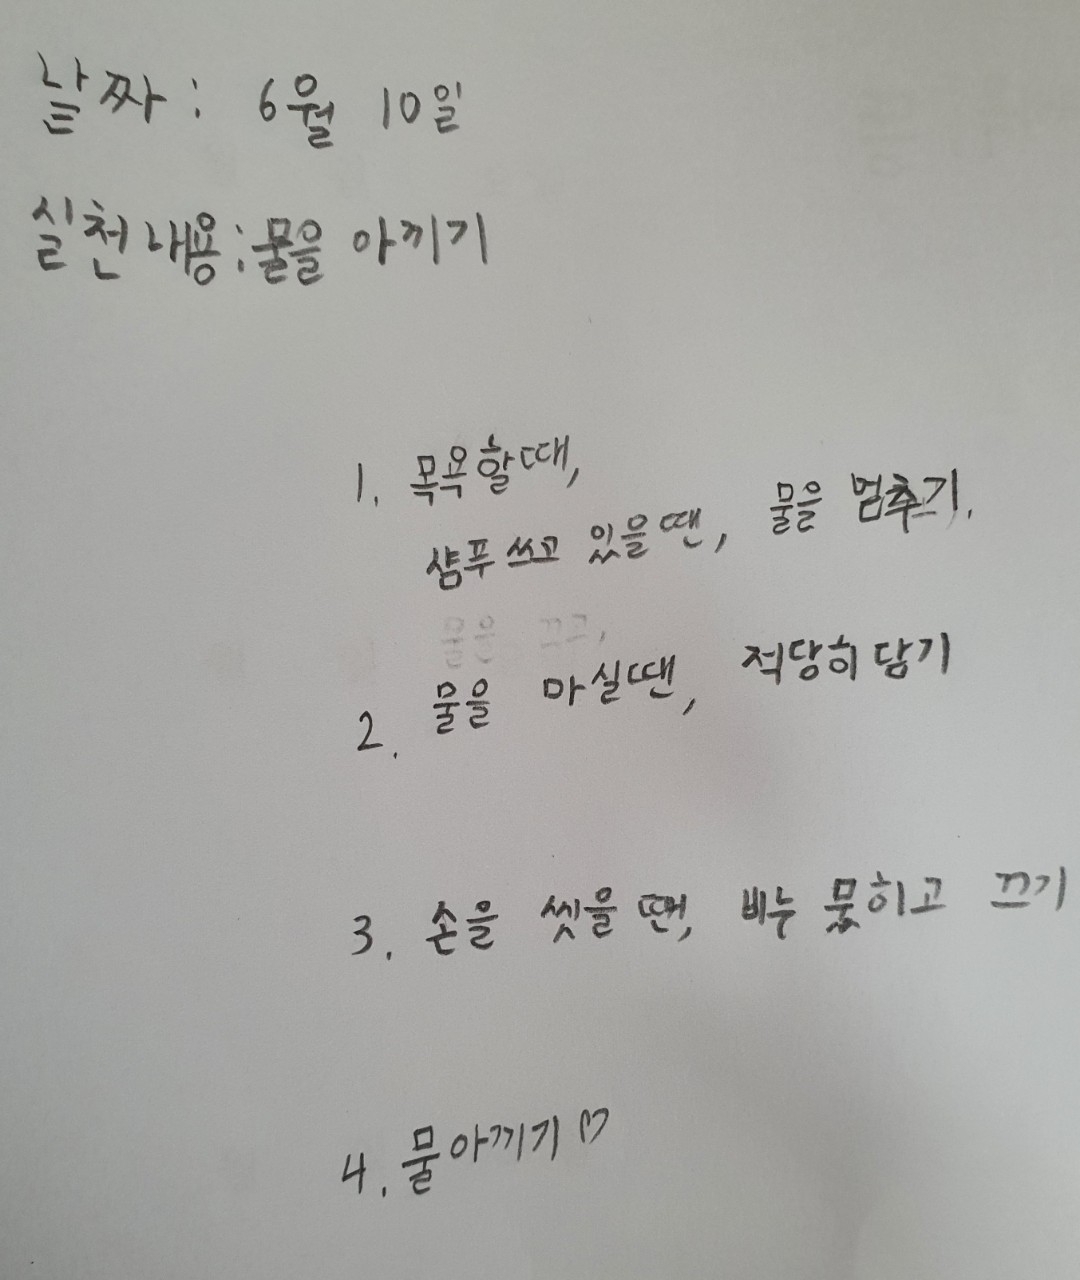 날짜: 6월 10일
실천내용:물을 아끼기
1. 목욕할때,
샴푸 쓰고 있을땐, 물을 멈추기.
2. 물을 마실땐, 적당히 담기
3. 손을 씻을 땐, 비누 뭍히고 끄기
4. 물아끼기♡